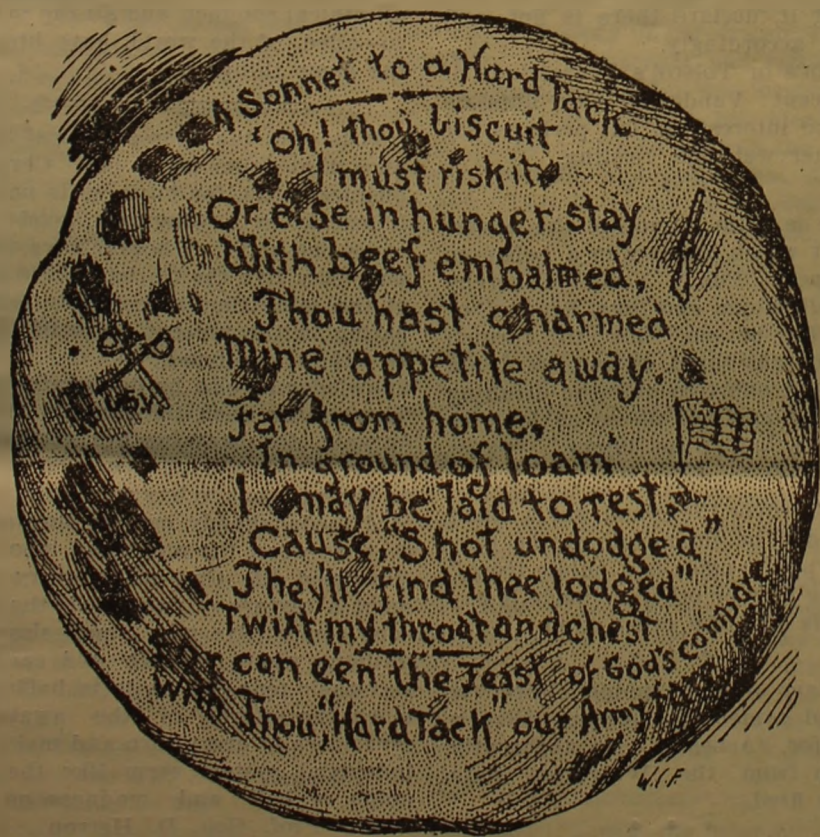 A Sonnet to a Hard Tack
"Oh! thou biscuit
I must risk it
Or else in hunger stay
With beef embalmed,
Thou hast charmed
Mine appetite away.
Far from home,
In ground of loam
I may be laid to rest.
Cause, "Shot undodged"
They'll find thee lodged"
'Twixt my throat and chest
can e'en the Feast of God's compare
With Thou, "Hard Tack" our Army
W.C.F.